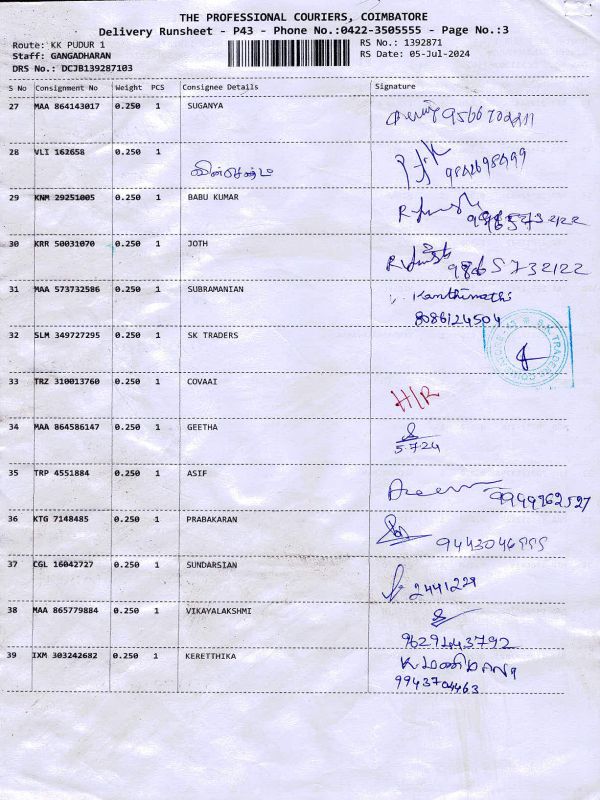 THE PROFESSIONAL COURIERS, COIMBATORE
Delivery Runsheet - P43 - Phone No.:0422-3505555 - Page No.:3
Route: KK PUDUR 1
RS No.: 1392871
Staff: GANGADHARAN
RS Date: 05-Jul-2024
DRS No.: DCJB139287103
S No Consignment No Weight PCS Consignee Details Signature
27 MAA 864143017 0.250 1 SUGANYA
28 VLI 162658 0.250 1
29 KNM 29251005 0.250 1 BABU KUMAR
30 KRR 50031070 0.250 1 JOTH
9865732122
31 MAA 573732586 0.250 1 SUBRAMANIAN Kanthimathi
8086124504
32 SLM 349727295 0.250 1 SK TRADERS
33 TRZ 310013760 0.250 1 COVAAI H/R
34 MAA 864586147 0.250 1 GEETHA
5.7.24
35 TRP 4551884 0.250 1 ASIF
9949962527
36 KTG 7148485 0.250 1 PRABAKARAN
37 CGL 16042727 0.250 1 SUNDARSIAN
2441229
38 MAA 865779884 0.250 1 VIKAYALAKSHMI
9629143792
39 IXM 303242682 0.250 1 KERETTHIKA
9943704463